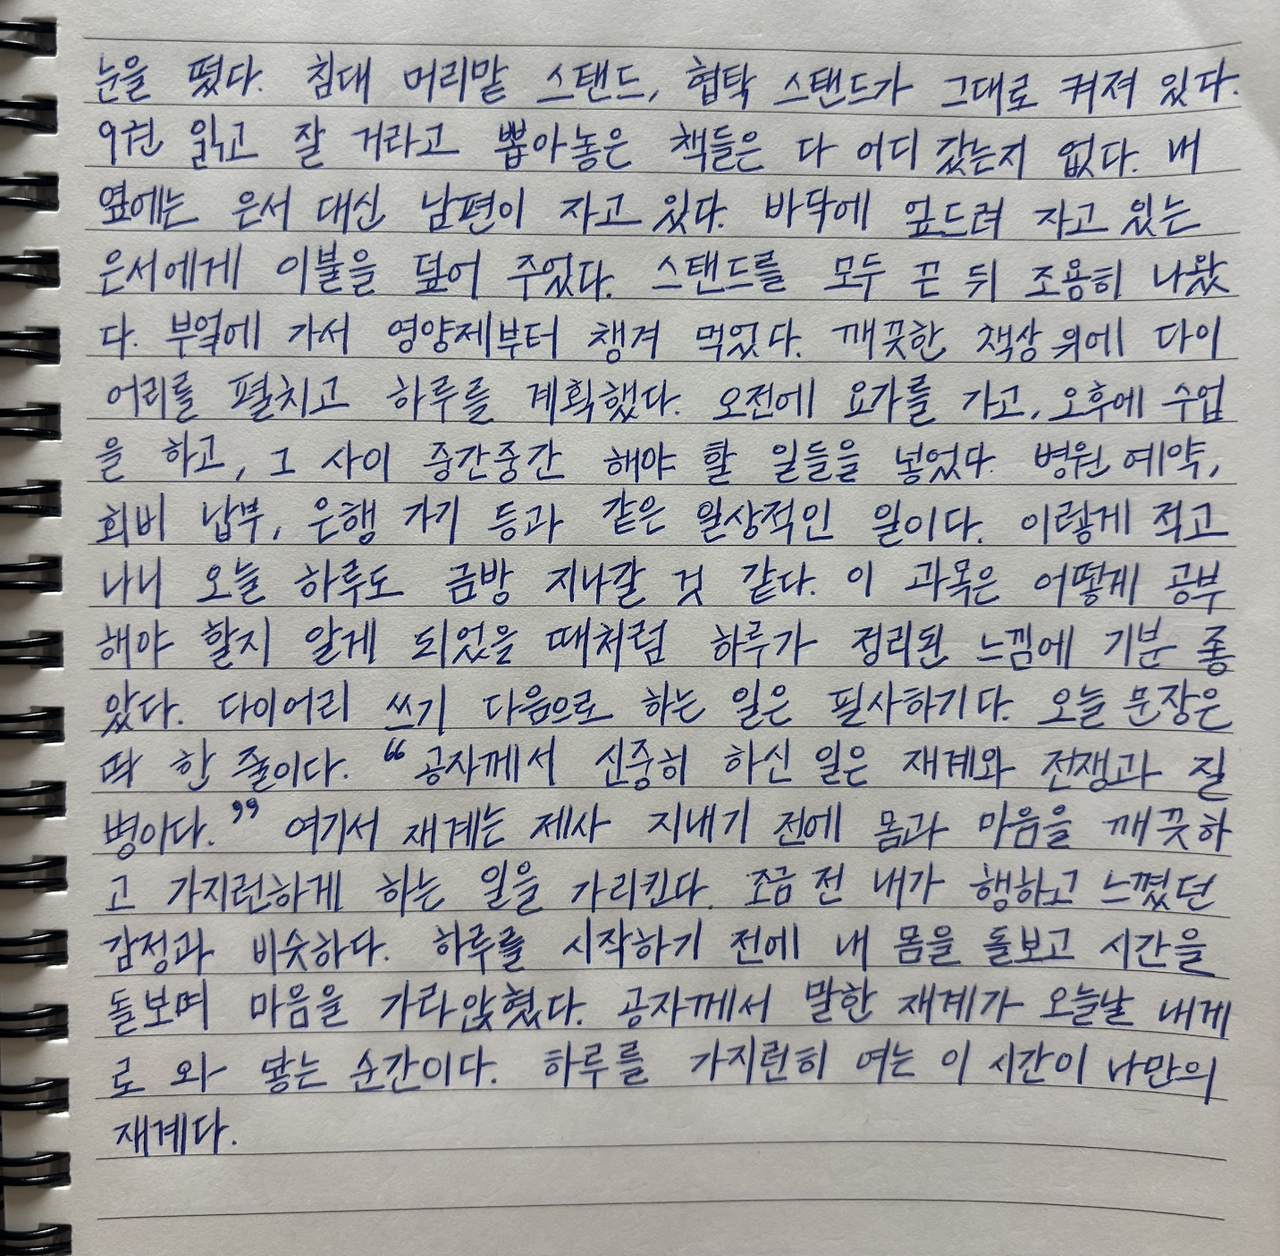 눈을 떴다. 침대 머리맡 스탠드, 협탁 스탠드가 그대로 켜져 있다.
9권 읽고 잘 거라고 뽑아놓은 책들은 다 어디 갔는지 없다. 내
옆에는 은서 대신 남편이 자고 있다. 바닥에 엎드려 자고 있는
은서에게 이불을 덮어 주었다. 스탠드를 모두 끈 뒤 조용히 나왔
다. 부엌에 가서 영양제부터 챙겨 먹었다. 깨끗한 책상 위에 다이
어리를 펼치고 하루를 계획했다. 오전에 요가를 가고, 오후에 수업
을 하고, 그 사이 중간중간 해야 할 일들을 넣었다. 병원 예약,
회비 납부, 은행 가기 등과 같은 일상적인 일이다. 이렇게 적고
나니 오늘 하루도 금방 지나갈 것 같다. 이 과목은 어떻게 공부
해야 할지 알게 되었을 때처럼 하루가 정리된 느낌에 기분 좋
았다. 다이어리 쓰기 다음으로 하는 일은 필사하기다. 오늘 문장은
딱 한 줄이다. “공자께서 신중히 하신 일은 재계와 전쟁과 질
병이다.” 여기서 재계는 제사 지내기 전에 몸과 마음을 깨끗하
고 가지런하게 하는 일을 가리킨다. 조금 전 내가 행하고 느꼈던
감정과 비슷하다. 하루를 시작하기 전에 내 몸을 돌보고 시간을
돌보며 마음을 가라앉혔다. 공자께서 말한 재계가 오늘날 내게
로 와 닿는 순간이다. 하루를 가지런히 여는 이 시간이 나만의
재계다.